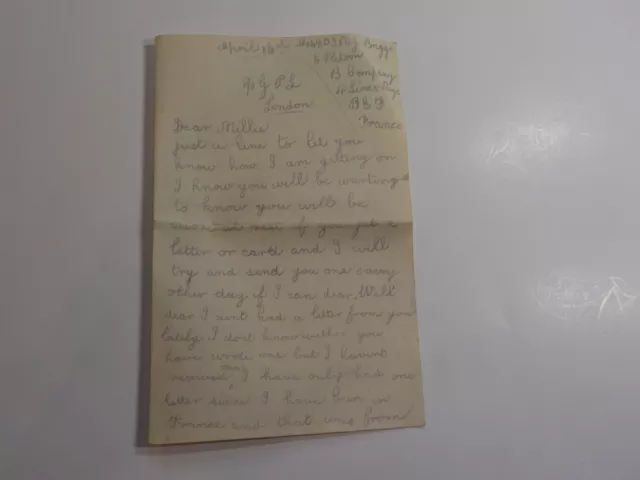 April
Briggs
B Company
c/o G P L
London
B E F
France
Dear Millie
just a line to let you
know how I am getting on
I know you will be wanting
to know you will be
if you get a
letter or card and I will
try and send you one every
other day if I can dear Well
dear I aint had a letter from you
lately I dont know wether you
have wrote one but I havent
received any I have only had one
letter since I have been in
France and that was from